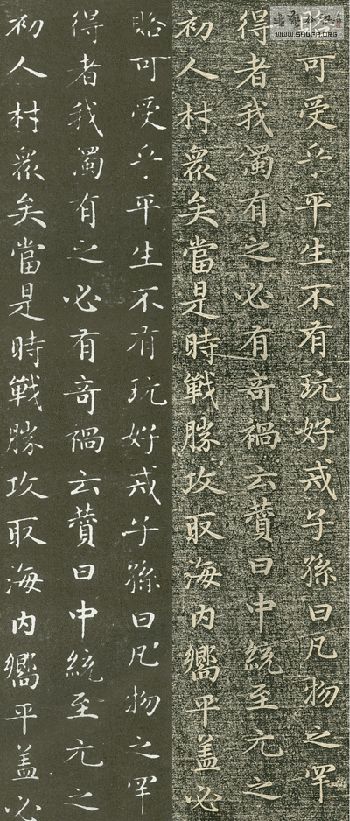 WWW.SHUFA.ORG
可受乎平生不有玩好戒子孫曰凡物之罕
得者我獨有之必有奇禍云贊曰中統至元之
初人材衆矣當是時戰勝攻取海内嚮平盖必
貽可受乎平生不有玩好戒子孫曰凡物之罕
得者我獨有之必有奇禍云贊曰中統至元之
初人材衆矣當是時戰勝攻取海内嚮平盖必